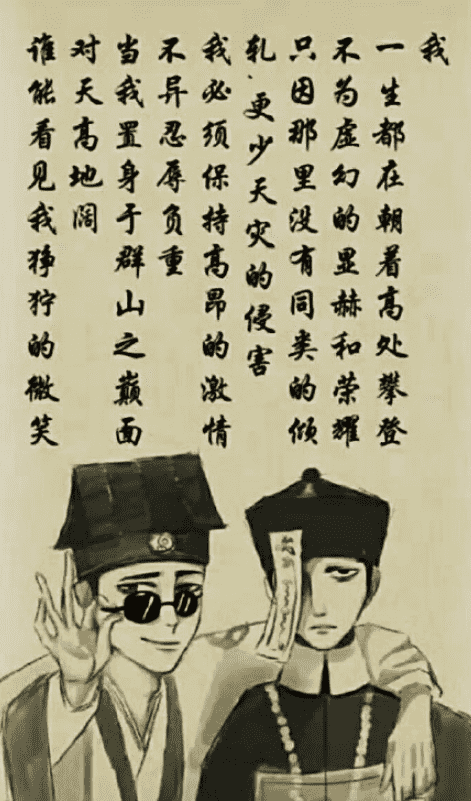 我
一生都在朝着高处攀登
不为虚幻的显赫和荣耀
只因那里没有同类的倾
轧、更少天灾的侵害
我必须保持高昂的激情
不异忍辱负重
当我置身于群山之巅面
对天高地阔
谁能看见我狰狞的微笑